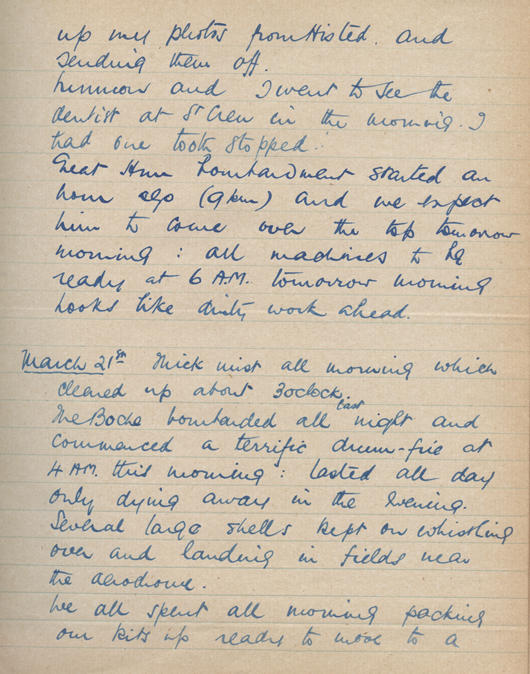 up my photos from Histed. and
sending them off.
and I went to see the
dentist at St Cren in the morning. I
had one tooth stopped.
Great Hun bombardment started an
hour ago (9 pm) and we expect
him to come over the top tomorrow
morning : all machines to be
ready at 6 A.M. tomorrow morning
Looks like dirty work ahead.
March 21st Thick mist all morning which
cleared up about 3oclock.
The Boche bombarded all last night and
commenced a terrific drum-fire at
4 AM. this morning : lasted all day
only dying away in the evening.
Several large shells kept on whistling
over and landing in fields near
the aerodrome.
We all spent all morning packing
our kits up ready to move to a